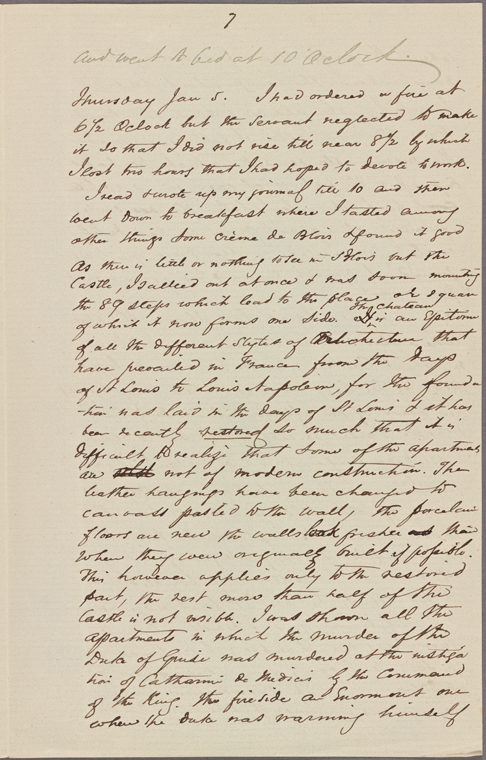 7
and went to bed at 10 O'Clock.
Thursday Jan 5. I had ordered a fire at
6 1/2 O clock but the servant neglected to make
it so that I did not rise till near 8 1/2 by which
I lost two hours that I had hoped to devote to work.
I read & wrote up my journal till 10 and then
went down to breakfast where I tasted among
other things some crème de Blois & found it good
As there is little or nothing to see in Blois but the
Castle, I sallied out at once & was soon mounting
the 89 steps which lead to the place or square
of which it now forms one side. The chateau is an Epitome
of all the different styles of Architecture that
have prevailed in France from the days
of St Louis to Louis Napoleon, for the founda
-tion was laid in the days of St Louis & it has
been recently restored so much that it is
difficult to realize that some of the apartments
are not of modern construction. The
leather hangings have been changed to
canvass pasted to the wall, the porcelain
floors are new the walls fresher than
when they were originally built if possible.
This however applies only to the restored
part, the rest more than half of the
Castle is not visible. I was shown all the
apartments in which the murder of the
Duke of Guise was murdered at the instiga
tion of Catharine de Medicis by the Command
of the King. The fireside an Enormous one
where the Duke was warming himself